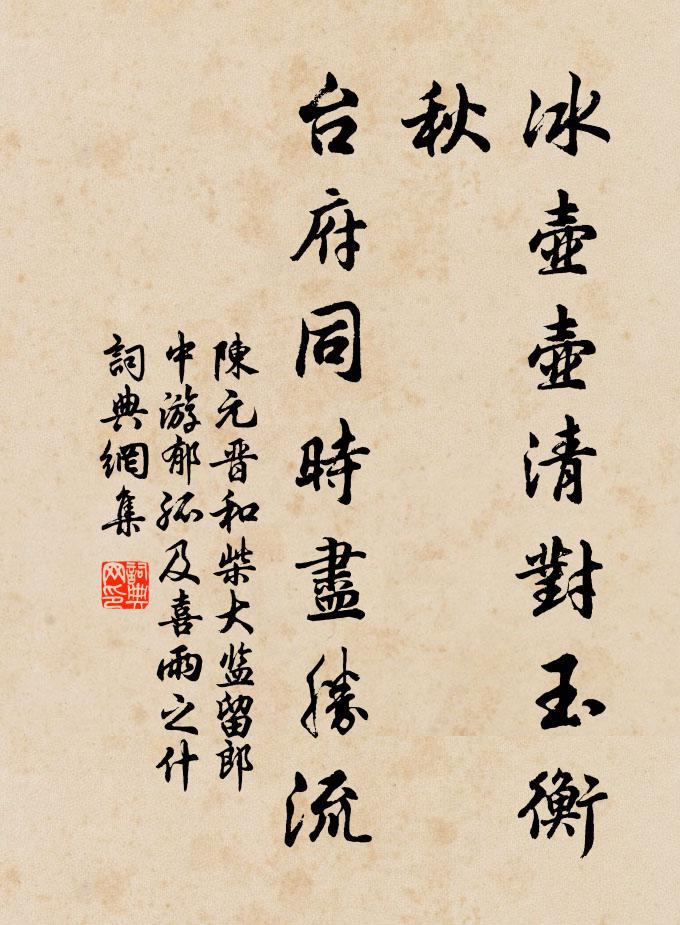 冰壺壺清對玉衡
秋
台府同時盡勝流
陳元晋和柴大监留郎
中游郁孤及喜雨之什
詞典網集
詞典网印